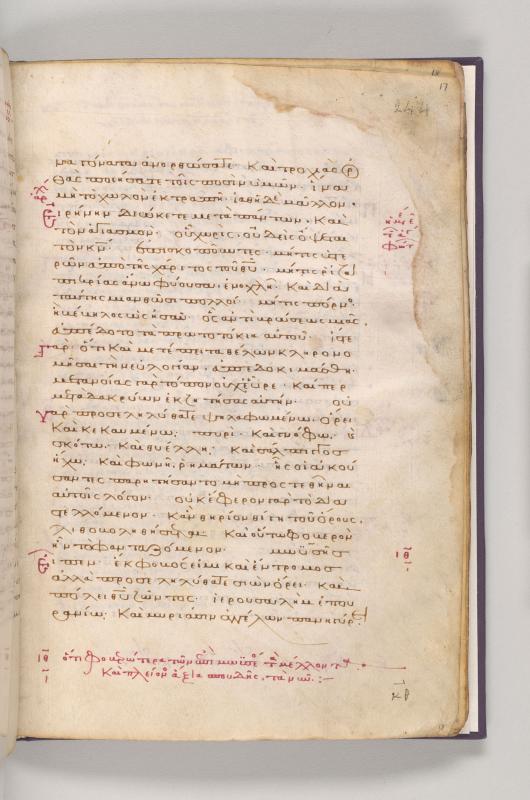 17
244
ματα γόνατα ἀνορθώσατε. Καὶ τροχιὰς ὀρ
θὰς ποιήσατε τοῖς ποσὶν ὑμῶν. ἵνα
μὴ τὸ χωλὸν ἐκτραπῆ. ἰαθῆ δὲ μᾶλλον.
Εἰρήνην διώκετε μετὰ πάντων. Καὶ
τὸν ἁγιασμὸν. οὗ χωρὶς, οὐδεὶς ὄψεται
τὸν κν. ἐπισκοποῦντες. μή τις ὑστε
ρῶν ἀπὸ τῆς χάριτος τοῦ θυ. μή τις ῥίζα
πικρίας ἄνω φύουσα, ἐνοχλῆ. Καὶ διὰ
ταύτης μιανθῶσι πολλοί. μή τις πόρνος
ἢ βέβηλος ὡς ἡσαῦ. ὃς ἀντὶ βρώσεως μιᾶς,
ἀπέδοτο τὰ πρωτοτόκια αὐτοῦ. ἴστε
γὰρ. ὅτι Καὶ μετέπειτα θέλων κληρονο
μῆσαι τὴν εὐλογίαν, ἀπεδοκιμάσθη.
μετανοίας γὰρ τόπον οὐχ εὗρε. Καίπερ
μετὰ δακρύων ἐκζητήσας αὐτήν. οὐ
γὰρ προσεληλύθατε ψηλαφωμένω ὄρει
Καὶ κεκαυμένω πυρὶ. Καὶ γνόφω. καὶ
σκότω. Καὶ θυέλλη. Καὶ σάλπιγγος
ἤχω. Καὶ φωνῆ ῥημάτων. ἧς οἱ ἀκού
σαντες παρητήσαντο μὴ προστεθῆναι
αὐτοῖς λόγον. οὐκ ἔφερον γὰρ τὸ δια
στελλόμενον. Κἂν θηρίον θίγη τοῦ ὄρους,
λιθοβοληθήσεται. Καὶ οὕτω φοβερὸν
ἦν τὸ φανταζόμενον. μωϋσῆς
εἶπεν. ἔκφοβός εἰμι Καὶ ἔντρομος
ἀλλὰ προσεληλύθατε σιὼν ὄρει. Καὶ
πόλει θυ ζῶντος. ἱερουσαλὴμ ἐπου
ρανίω. Καὶ μυριάσιν ἀγγέλων πανηγύρει
ιθ
ιθ ὅτι φοβερώτερα τῶν ἐπὶ μωϋσέως τὰ μέλλοντα.
Καὶ πλείονος ἄξια σπουδῆς, τὰ νῦν :–